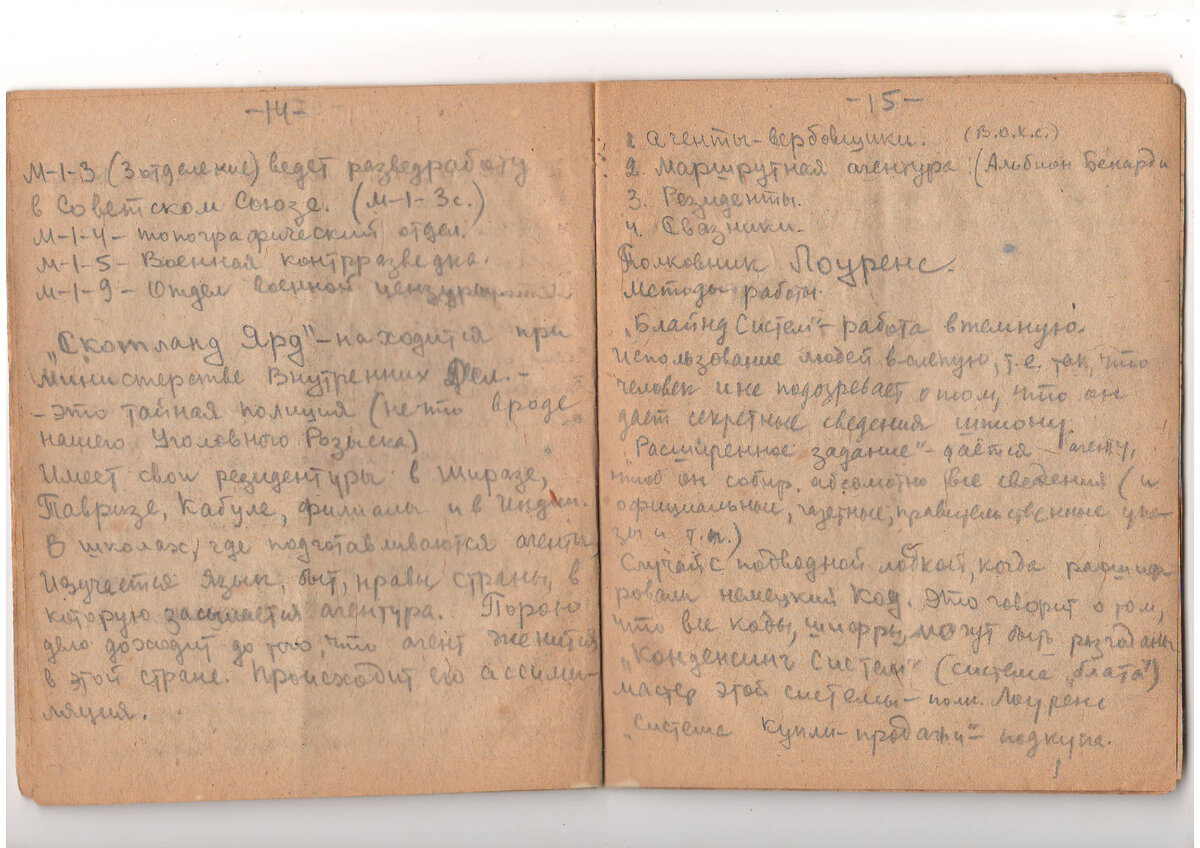 -14-
М-1-3 (3 отделение) ведет разведработу
в Советском Союзе. (М-1-3с.)
М-1-4 - топографический отдел.
М-1-5 - Военная контрразведка.
М-1-9 - Отдел военной цензуры
"Скотланд Ярд" - находится при
министерстве Внутренних Дел. -
- это тайная полиция (нечто вроде
нашего Уголовного Розыска)
Имеет свои резидентуры в Ширазе,
Тавризе, Кабуле, филиалы и в Индии.
В школах, где подготавливаются агенты,
изучается язык, быт, нравы страны, в
которую засылается агентура. Порою
дело доходит до того, что агент женится
в этой стране. Происходит его ассими-
ляция.
-15-
1. агенты-вербовщики. (В.О.К.С.)
2. Маршрутная агентура (Альбион Бенарди
3. Резиденты.
4. Связники.
Полковник Лоуренс.
Методы работы.
"Блайнд Систем" - работа втемную.
использование людей в-слепую, т.е. так, что
человек и не подозревает о том, что он
дает секретные сведения шпиону.
"Расширенное задание" - даётся агенту,
чтоб он собир. абсолютно все сведения (и
официальные, газетные, правительственные ука-
зы и т.п.)
Случай с подводной лодкой, когда расшиф-
ровали немецкий код. Это говорит о том,
что все коды, шифры, могут быть разгаданы
"Конденсинг Систем" (система "блата")
мастер этой системы - полк. Лоуренс
"Система купли-продажи" - подкупа.